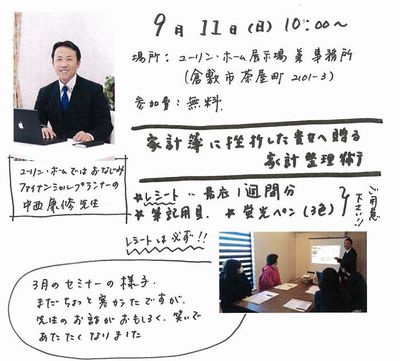 9月 11日(日) 10:00～
場所： ユーリン・ホーム展示場 兼 事務所
(倉敷市茶屋町 2101-3)
参加費： 無料
家計簿に挫折した貴女へ贈る
家計整理術
ユーリン・ホームではおなじみ
ファイナンシャルプランナーの
中西康修先生
★レシート‥最低1週間分
★筆記用具 ★蛍光ペン(3色)
ご用意
下さい!!
レシートは必ず!!
3月のセミナーの様子。
まだちょっと寒かったですが、
先生のお話がおもしろく、笑いで
あたたくなりました